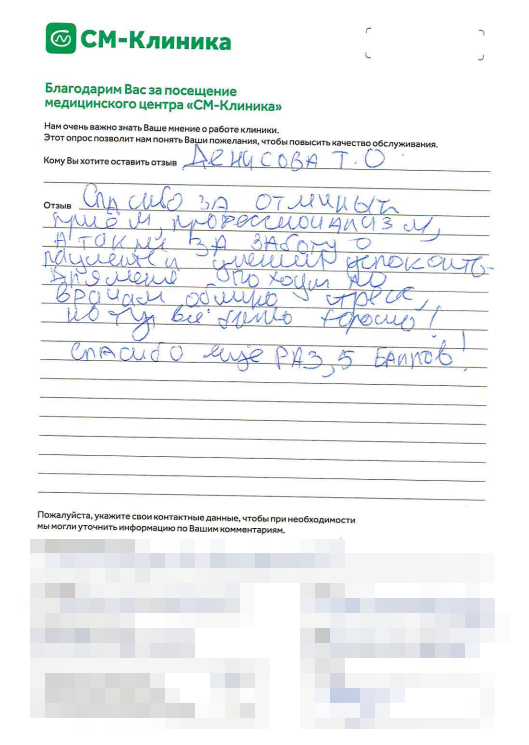 СМ-Клиника
Благодарим Вас за посещение
медицинского центра «СМ-Клиника»
Нам очень важно знать Ваше мнение о работе клиники.
Этот опрос позволит нам понять Ваши пожелания, чтобы повысить качество обслуживания.
Кому Вы хотите оставить отзыв Денисова Т.О
Отзыв Спасибо за отличный
приём, профессионализм,
а также за заботу о
пациенте и умение успокоить.
Для меня походы по
врачам обычно стресс,
но тут всё было хорошо!
Спасибо еще раз, 5 баллов!
Пожалуйста, укажите свои контактные данные, чтобы при необходимости
мы могли уточнить информацию по Вашим комментариям.